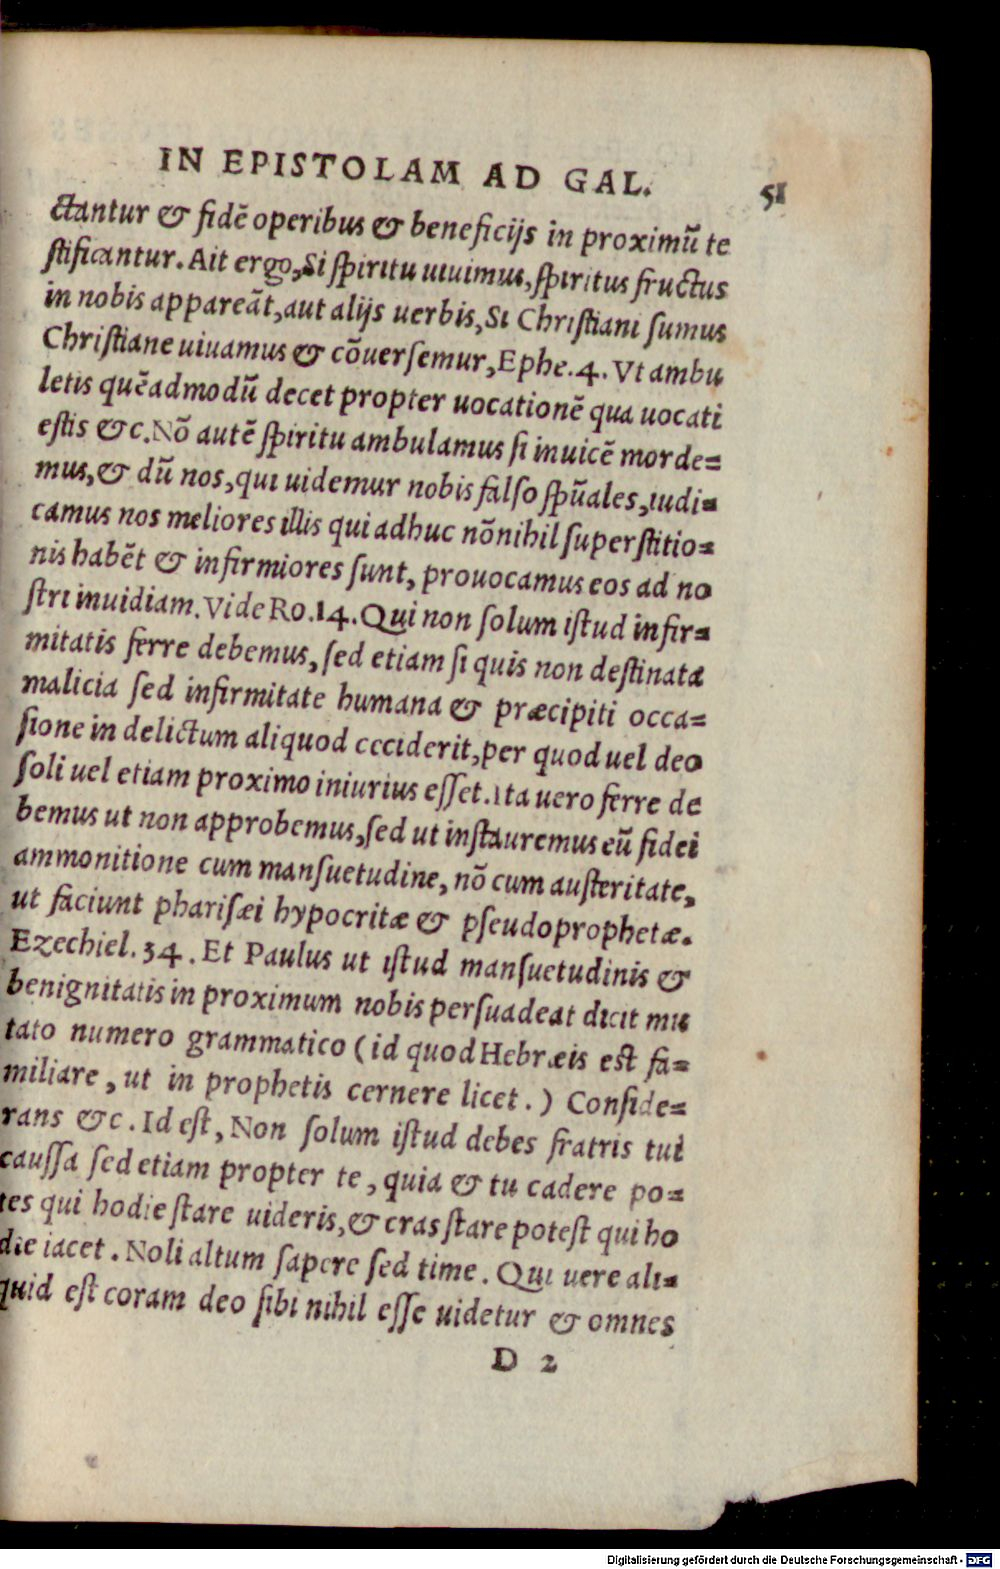 IN EPISTOLAM AD GAL. 51
ctantur & fidē operibus & beneficijs in proximū te
ſtificantur. Ait ergo, Si ſpiritu uiuimus, ſpiritus fructus
in nobis appareāt, aut alijs uerbis, Si Chriſtiani ſumus
Chriſtiane uiuamus & cōuerſemur, Ephe. 4. Vt ambu
letis quēadmodū decet propter uocationē qua uocati
eſtis &c. Nō autē ſpiritu ambulamus ſi inuicē morde=
mus, & dū nos, qui uidemur nobis falſo ſpūales, iudi=
camus nos meliores illis qui adhuc nōnihil ſuperſtitio=
nis habēt & infirmiores ſunt, prouocamus eos ad no
ſtri inuidiam. Vide Ro. 14. Qui non ſolum iſtud infir=
mitatis ferre debemus, ſed etiam ſi quis non deſtinata
malicia ſed infirmitate humana & præcipiti occa=
ſione in delictum aliquod ccciderit, per quod uel deo
ſoli uel etiam proximo iniurius eſſet. Ita uero ferre de
bemus ut non approbemus, ſed ut inſtauremus eū fidei
ammonitione cum manſuetudine, nō cum auſteritate,
ut faciunt phariſæi hypocritæ & pſeudoprophetæ.
Ezechiel. 34. Et Paulus ut iſtud manſuetudinis &
benignitatis in proximum nobis perſuadeat dicit mu
tato numero grammatico (id quod Hebræis eſt fa=
miliare, ut in prophetis cernere licet.) Conſide=
rans &c. Id eſt, Non ſolum iſtud debes fratris tui
cauſſa ſed etiam propter te, quia & tu cadere po=
tes qui hodie ſtare uideris, & cras ſtare poteſt qui ho
die iacet. Noli altum ſapere ſed time. Qui uere ali=
quid eſt coram deo ſibi nihil eſſe uidetur & omnes
D 2
Digitalisierung gefördert durch die Deutsche Forschungsgemeinschaft - DFG